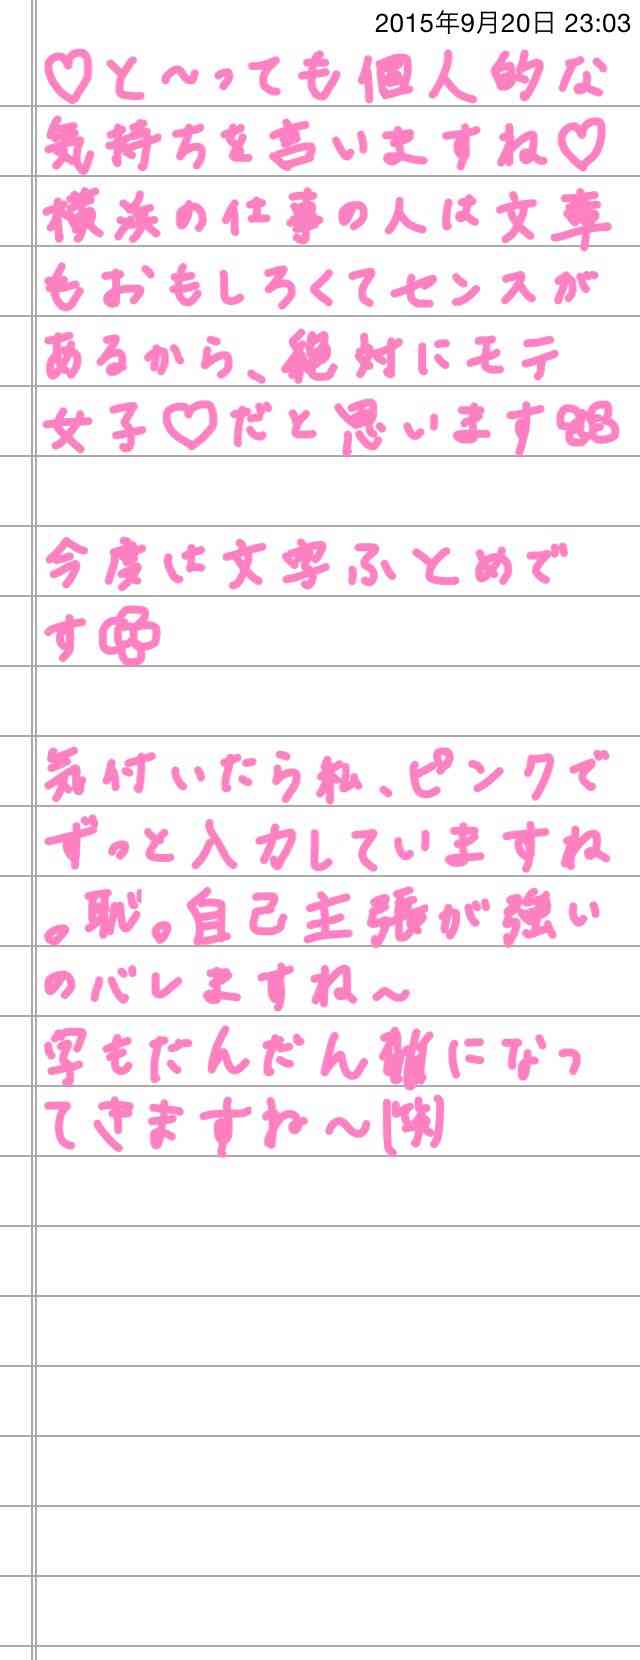 2015年9月20日 23:03
♡と〜っても個人的な
気持ちを言いますね♡
横浜の仕事の人は文章
もおもしろくてセンスが
あるから、絶対にモテ
女子♡だと思います
今度は文字ふとめで
す
気付いたら私、ピンクで
ずっと入力していますね
。恥。自己主張が強い
のバレますね〜
字もだんだん雑になっ
てきますね〜(笑)